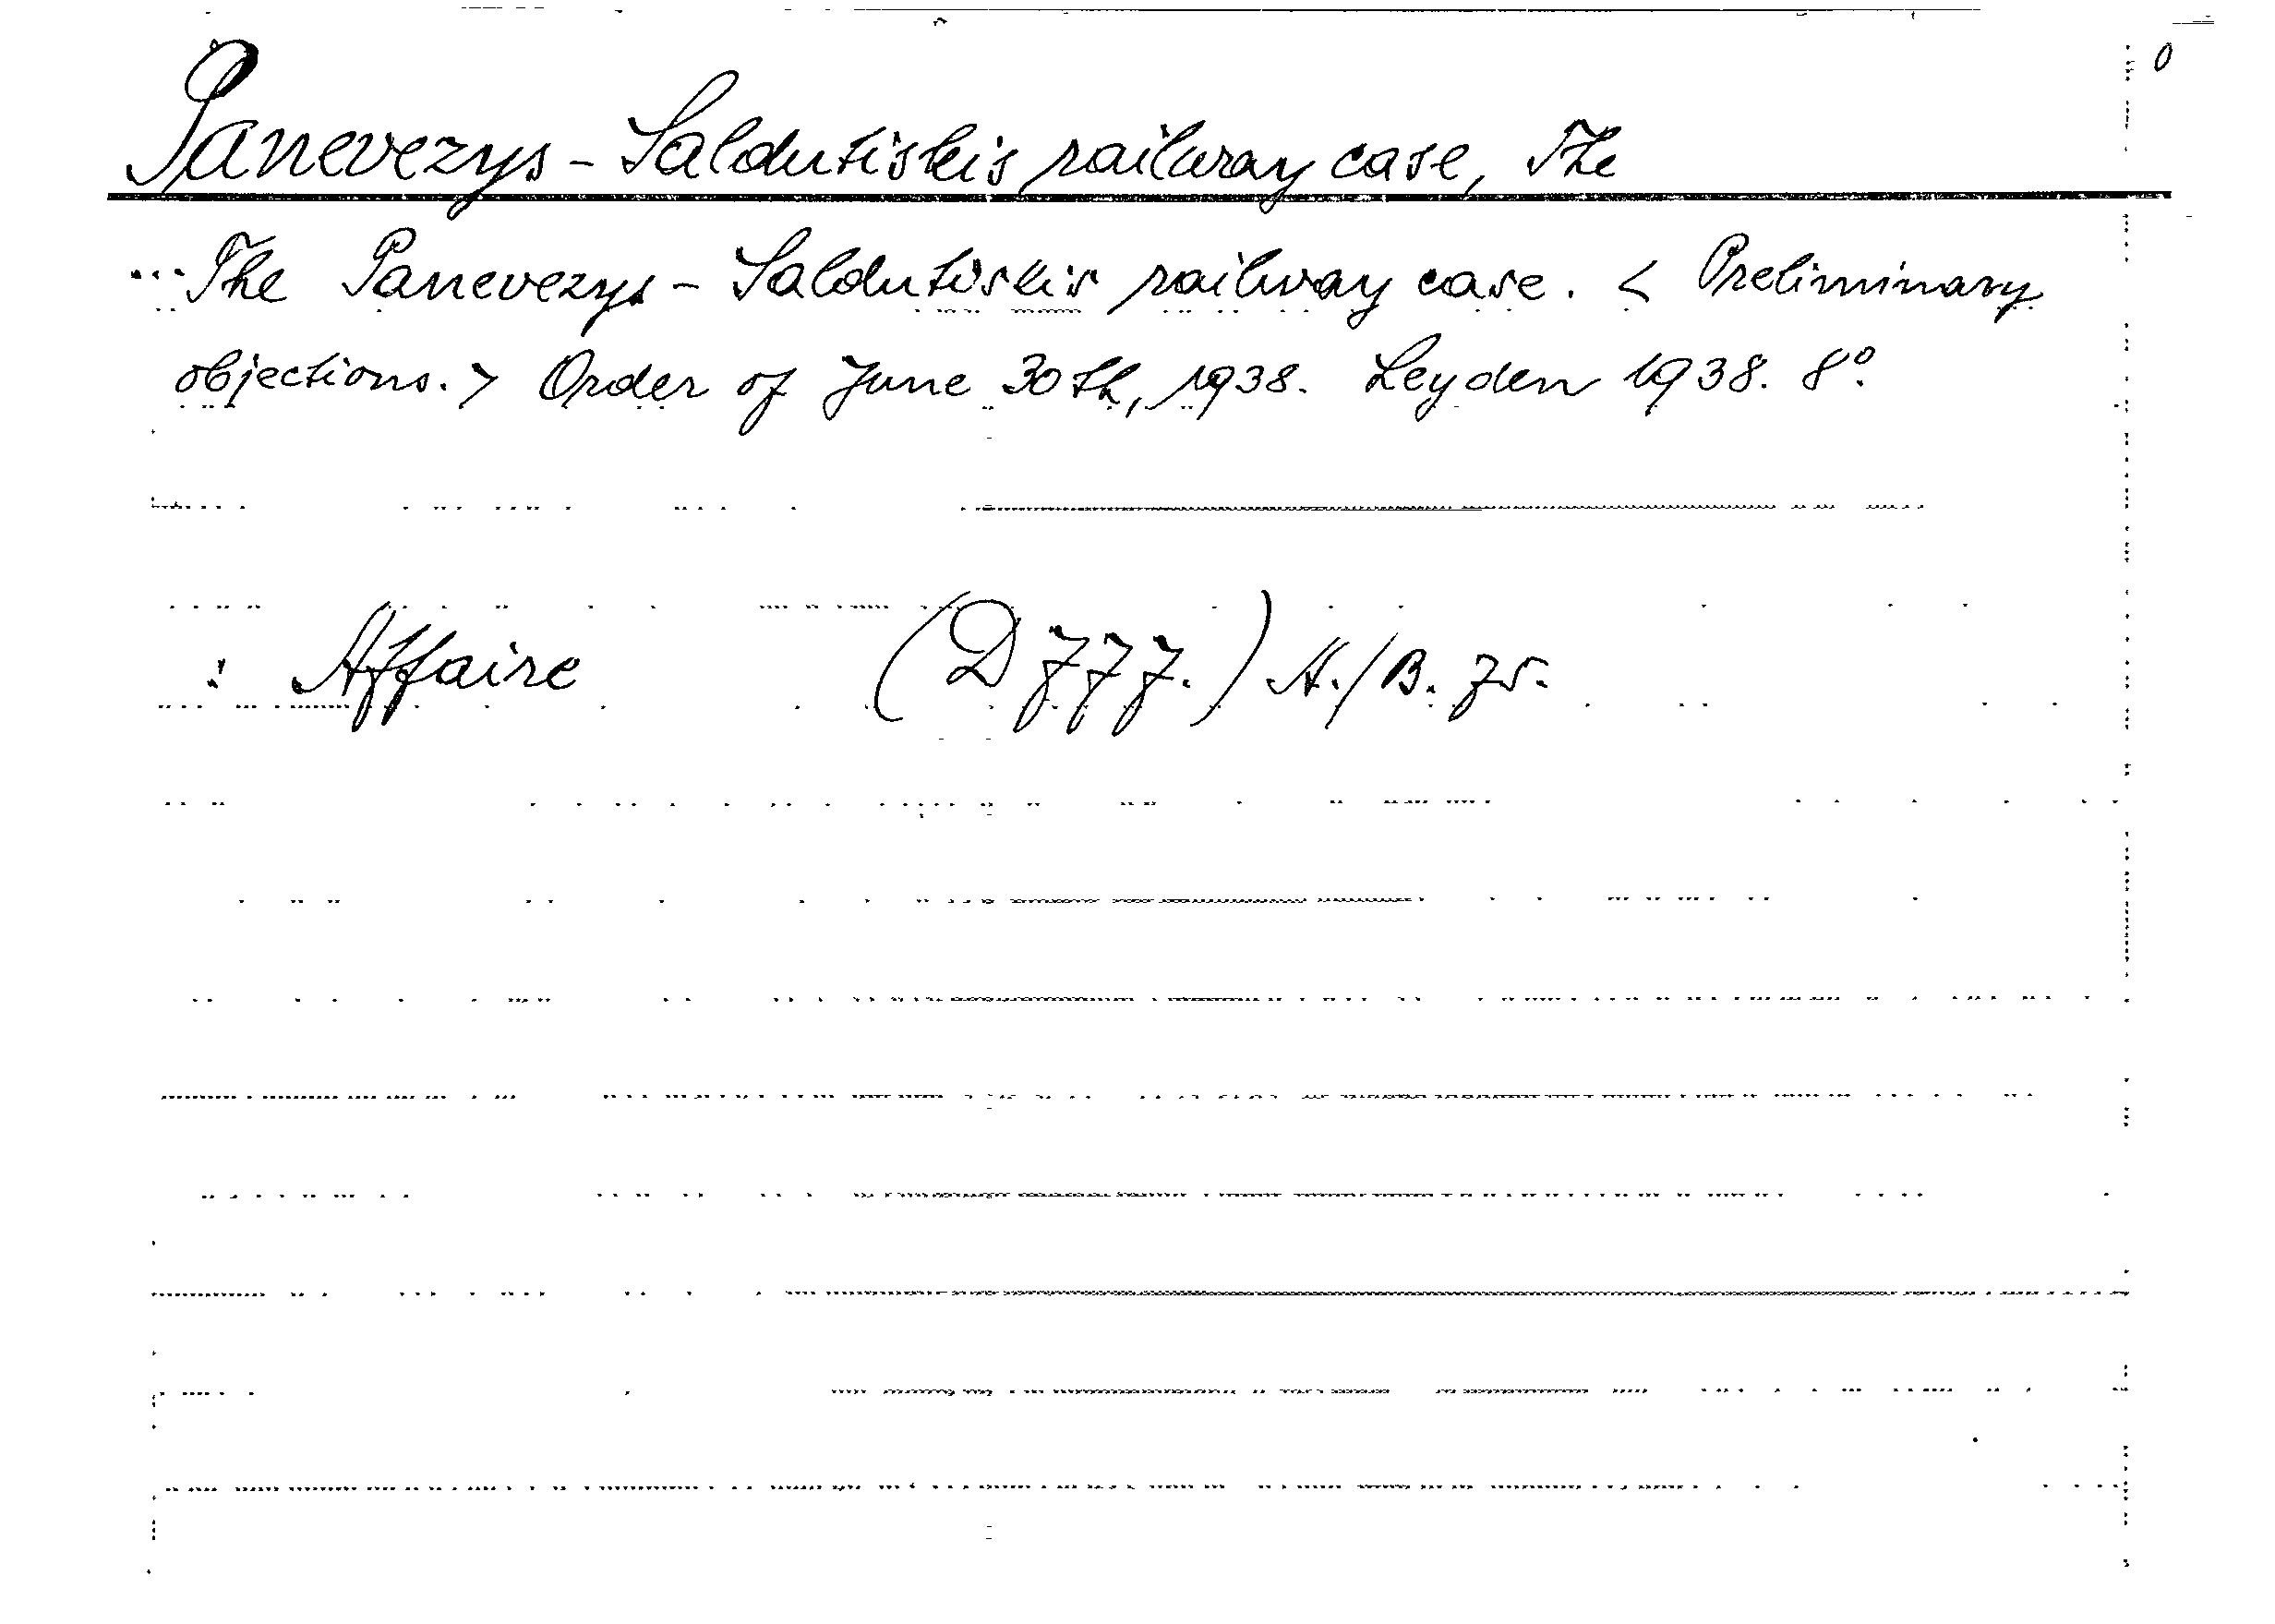 0
Panevezys - Saldutiskis railway case, The
... The Panevezys - Saldutiskis railway case. < Preliminary
objections. > Order of June 30th, 1938. Leyden 1938. 8°.
: Affaire (D 777.) A./B. 75.